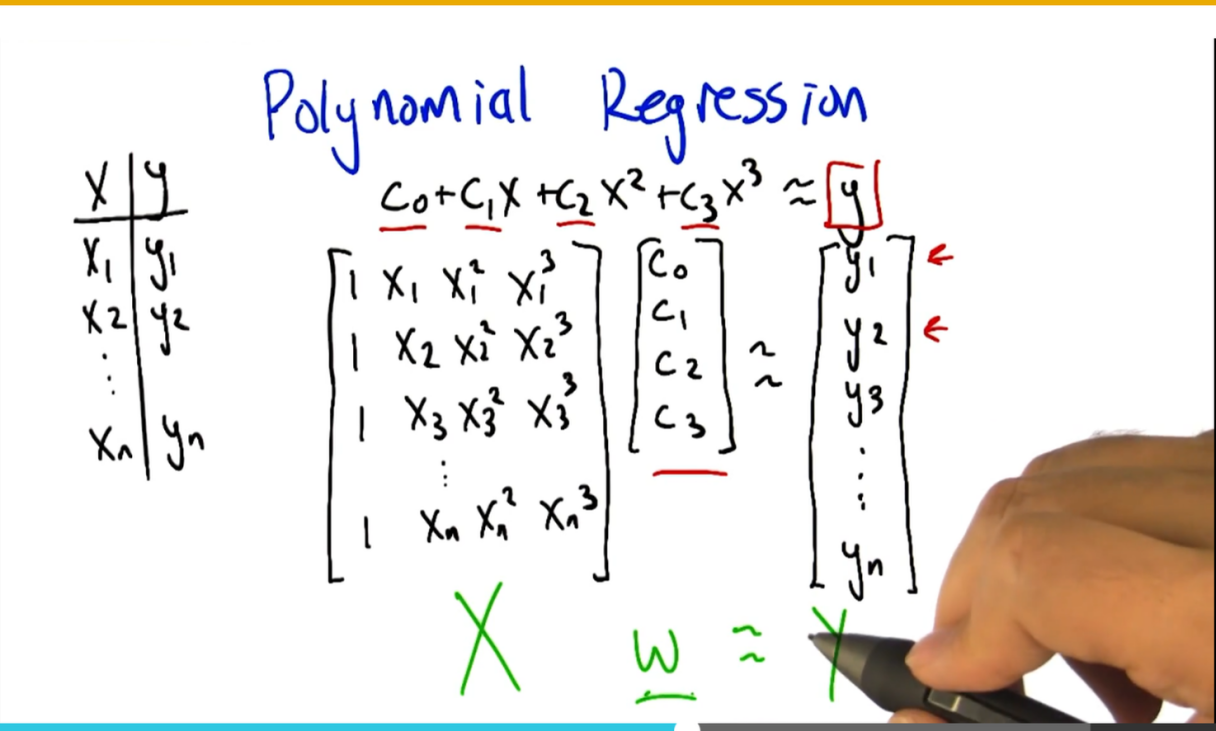 Polynomial Regression
x y
x₁ y₁
x₂ y₂
⋮
xₙ yₙ
c₀+c₁x+c₂x²+c₃x³ ≈ y
1 x₁ x₁² x₁³
1 x₂ x₂² x₂³
1 x₃ x₃² x₃³
⋮
1 xₙ xₙ² xₙ³
c₀
c₁
c₂
c₃
≈
y₁ ←
y₂ ←
y₃
⋮
yₙ
X w ≈ Y